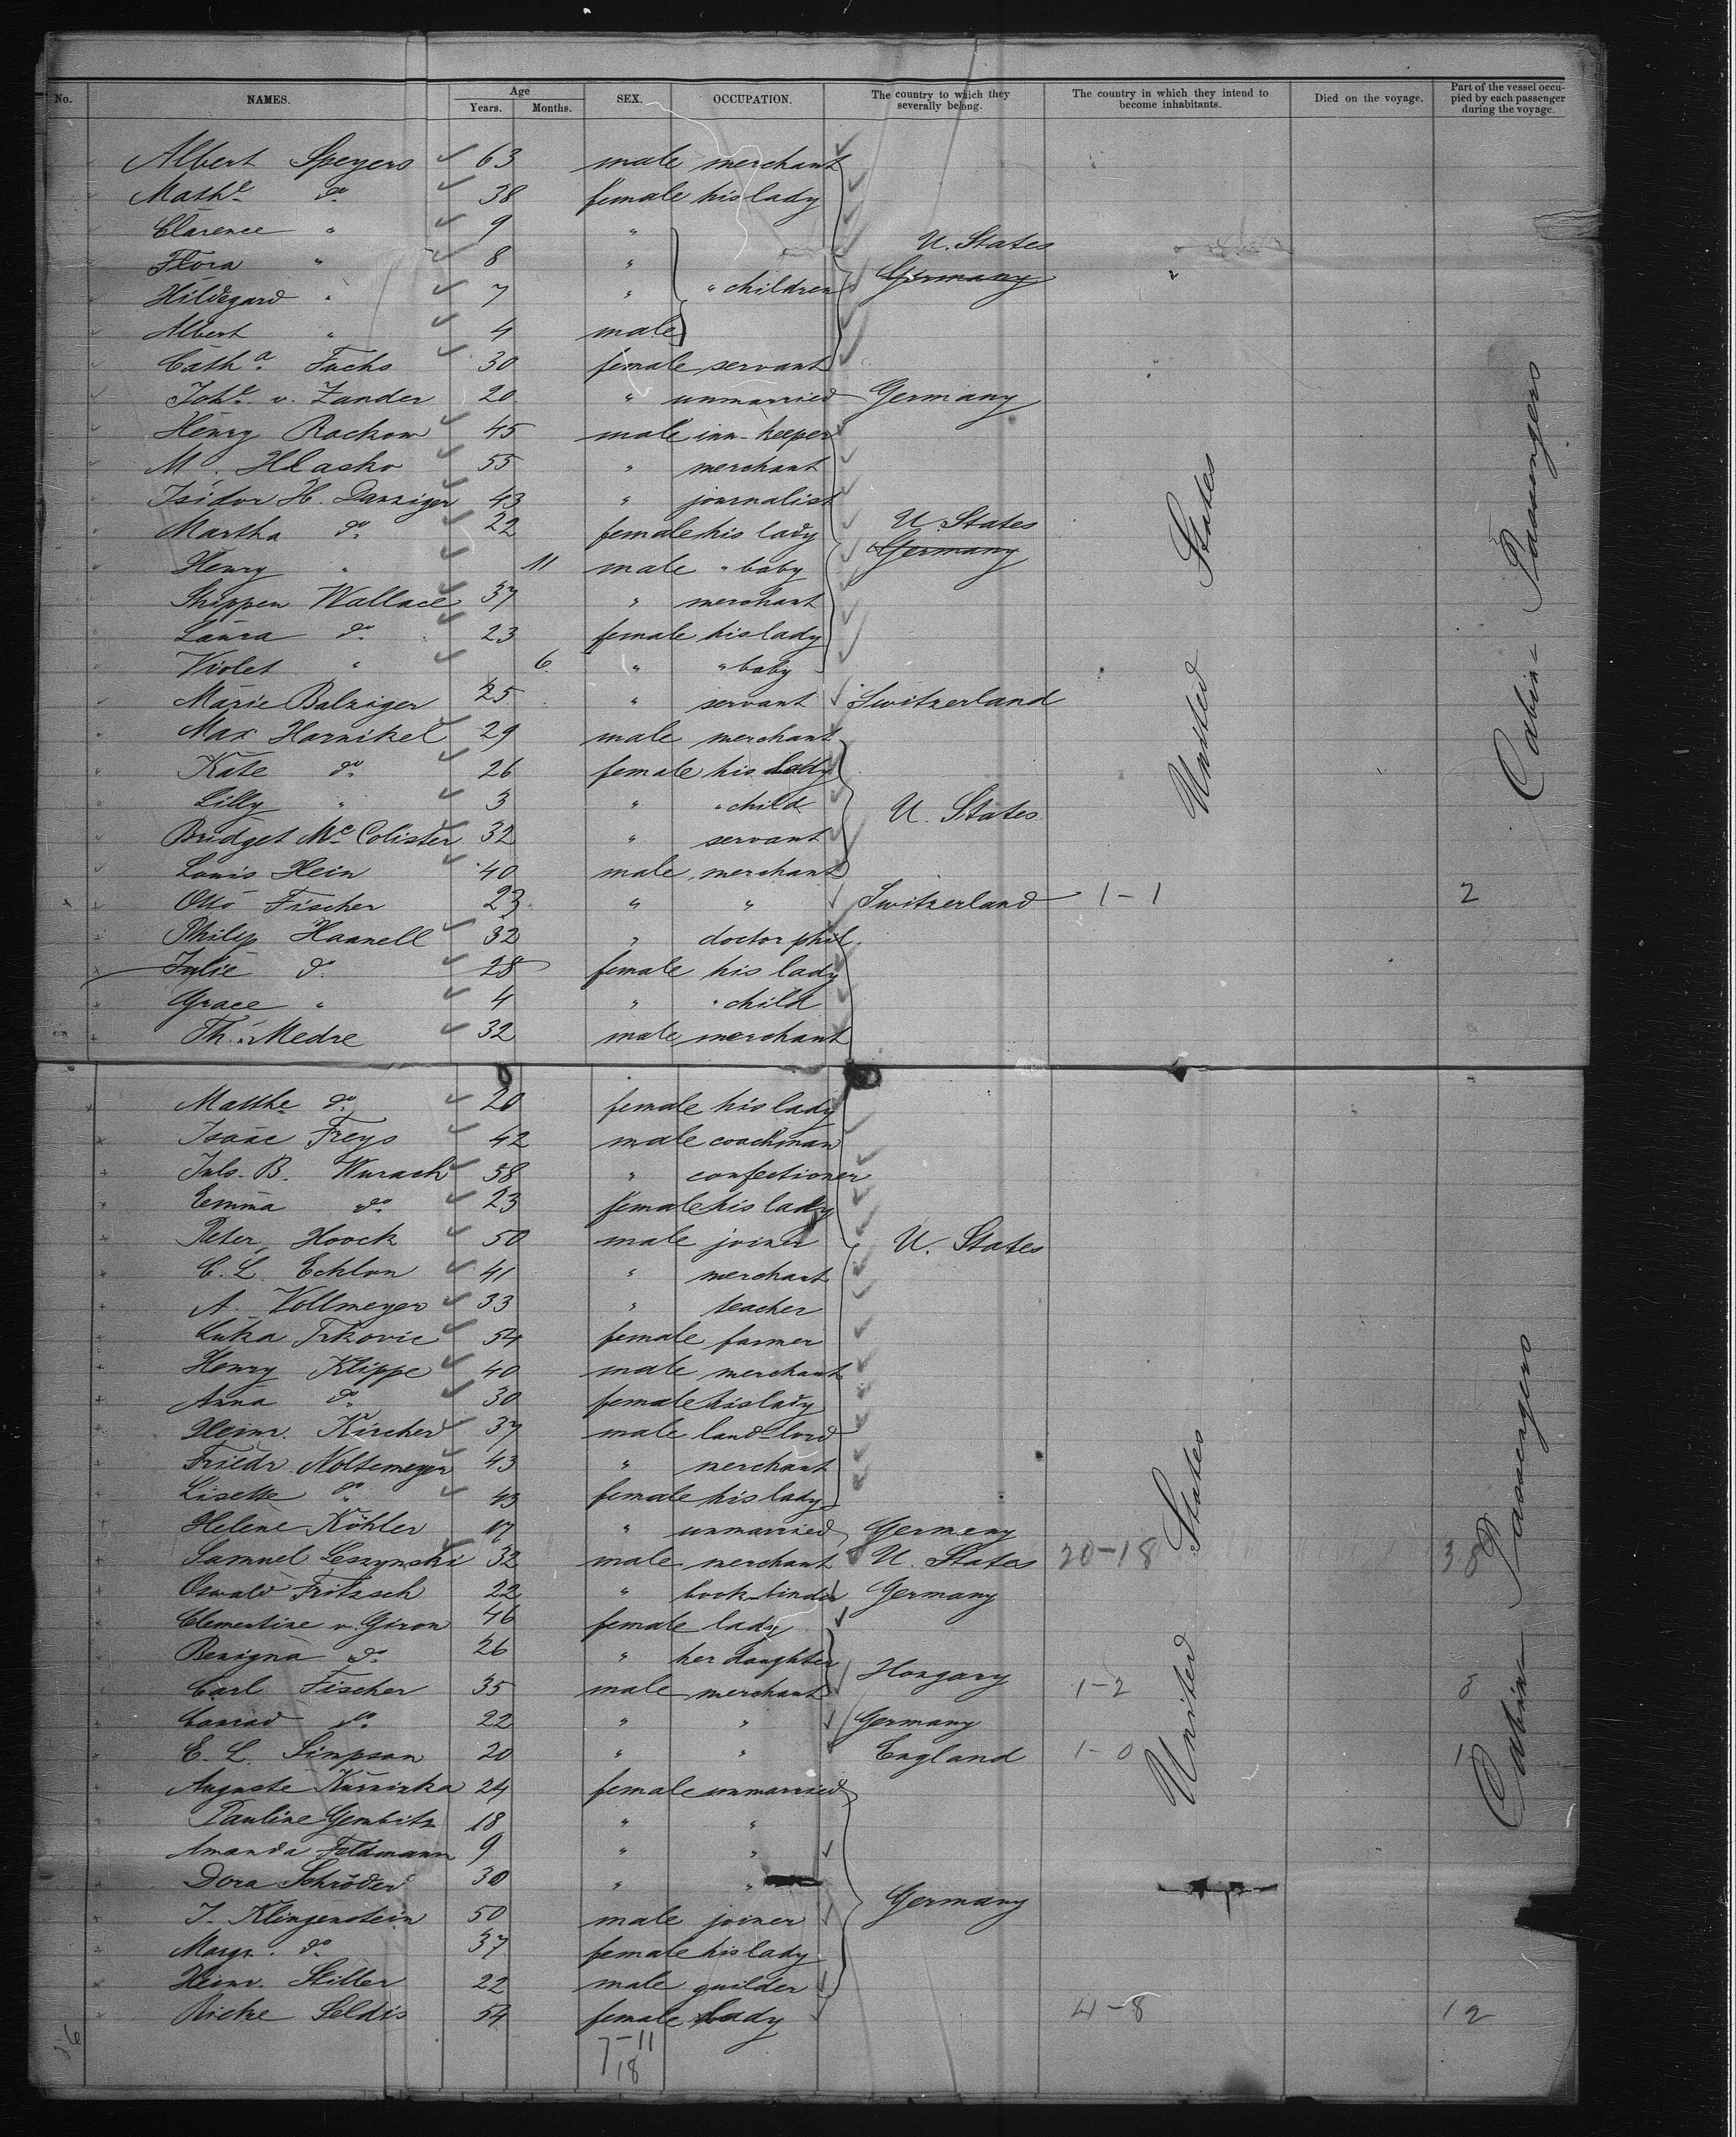 No. NAMES. Age Years. Months. SEX. OCCUPATION. The country to which they severally belong. The country in which they intend to become inhabitants. Died on the voyage. Part of the vessel occupied by each passenger during the voyage.
Albert Speyers 63 male merchant
Mathe. do. 38 female his lady
Clarence " 9 "
Flora " 8 " U. States
Hildegard " 7 " " children Germany
Albert " 4 male
Catha. Fuchs 30 female servant
Johe. v. Zander 20 " unmarried Germany
Henry Rockow 45 male inn-keeper
M. Hlasko 55 " merchant
Isidor H. Danziger 43 " journalist
Martha do. 22 female his lady U. States
Henry " 11 male " baby Germany
Shippen Wallace 37 " merchant
Laura do. 23 female his lady
Violet " 6 " " baby
Marie Balziger 25 " servant Switzerland
Max Harnikel 29 male merchant
Kate do. 26 female his lady
Lilly " 3 " " child U. States
Bridget Mc Colister 32 " servant
Louis Hein 40 male merchant
Otto Fischer 23 " " Switzerland 1-1 2
Philip Haanell 32 " doctor phil.
Julie do. 28 female his lady
Grace " 4 " " child
Th. Medre 32 male merchant
United States
Cabin Passengers
do. 20 female his lady
Isaac Freys 42 male coachman
Juls. B. Wurach 58 " confectioner
Emma do. 23 female his lady
Peter Hoock 50 male joiner U. States
C. L. Echlon 41 " merchant
A. Vollmeyer 33 " teacher
Luka Trkovic 54 female farmer
Henry Klippe 40 male merchant
Anna do. 30 female his lady
Heinr. Kircher 37 male land-lord
Friedr. Noltemeyer 43 " merchant
Lisette do. 43 female his lady
Helene Köhler 17 " unmarried Germany
Samuel Leszynski 32 male merchant U. States 20-18 38
Oswald Fritzsch 22 " book-binder Germany
Clementine v. Giron 46 female lady
Benigna do. 26 " her daughter Hongary
Carl Fischer 35 male merchant 1-2
Conrad do. 22 " " Germany
E. L. Simpson 20 " " England 1-0 1
Auguste 24 female unmarried
Pauline Gembitz 18 " "
Amanda Feldmann 9 " "
Dora Schröder 30 " "
J. Klingenstein 50 male joiner Germany
Margr. do. 37 female his lady
Heinr. Stiller 22 male guilder
Rieke Seldis 54 female lady 4-8 12
7-11
18
United States
Cabin Passengers